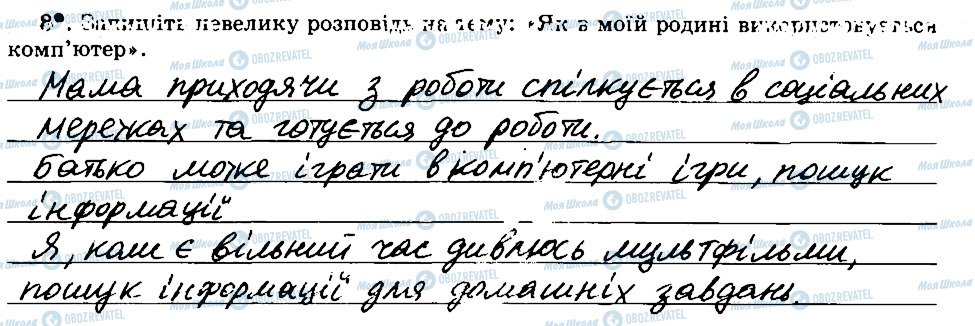 8*. Запишіть невелику розповідь на тему: «Як в моїй родині використовується
комп'ютер».
Мама приходячи з роботи спілкується в соціальних
мережах та готується до роботи.
батько може іграти в комп'ютерні ігри, пошук
інформації
Я, коли є вільний час дивлюсь мультфільми,
пошук інформації для домашніх завдань.